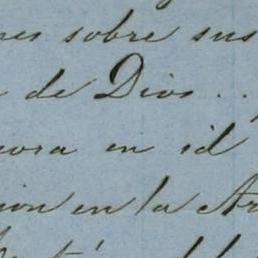 nes sobre sus
de Dios ..
ora en id
ion en la Ar